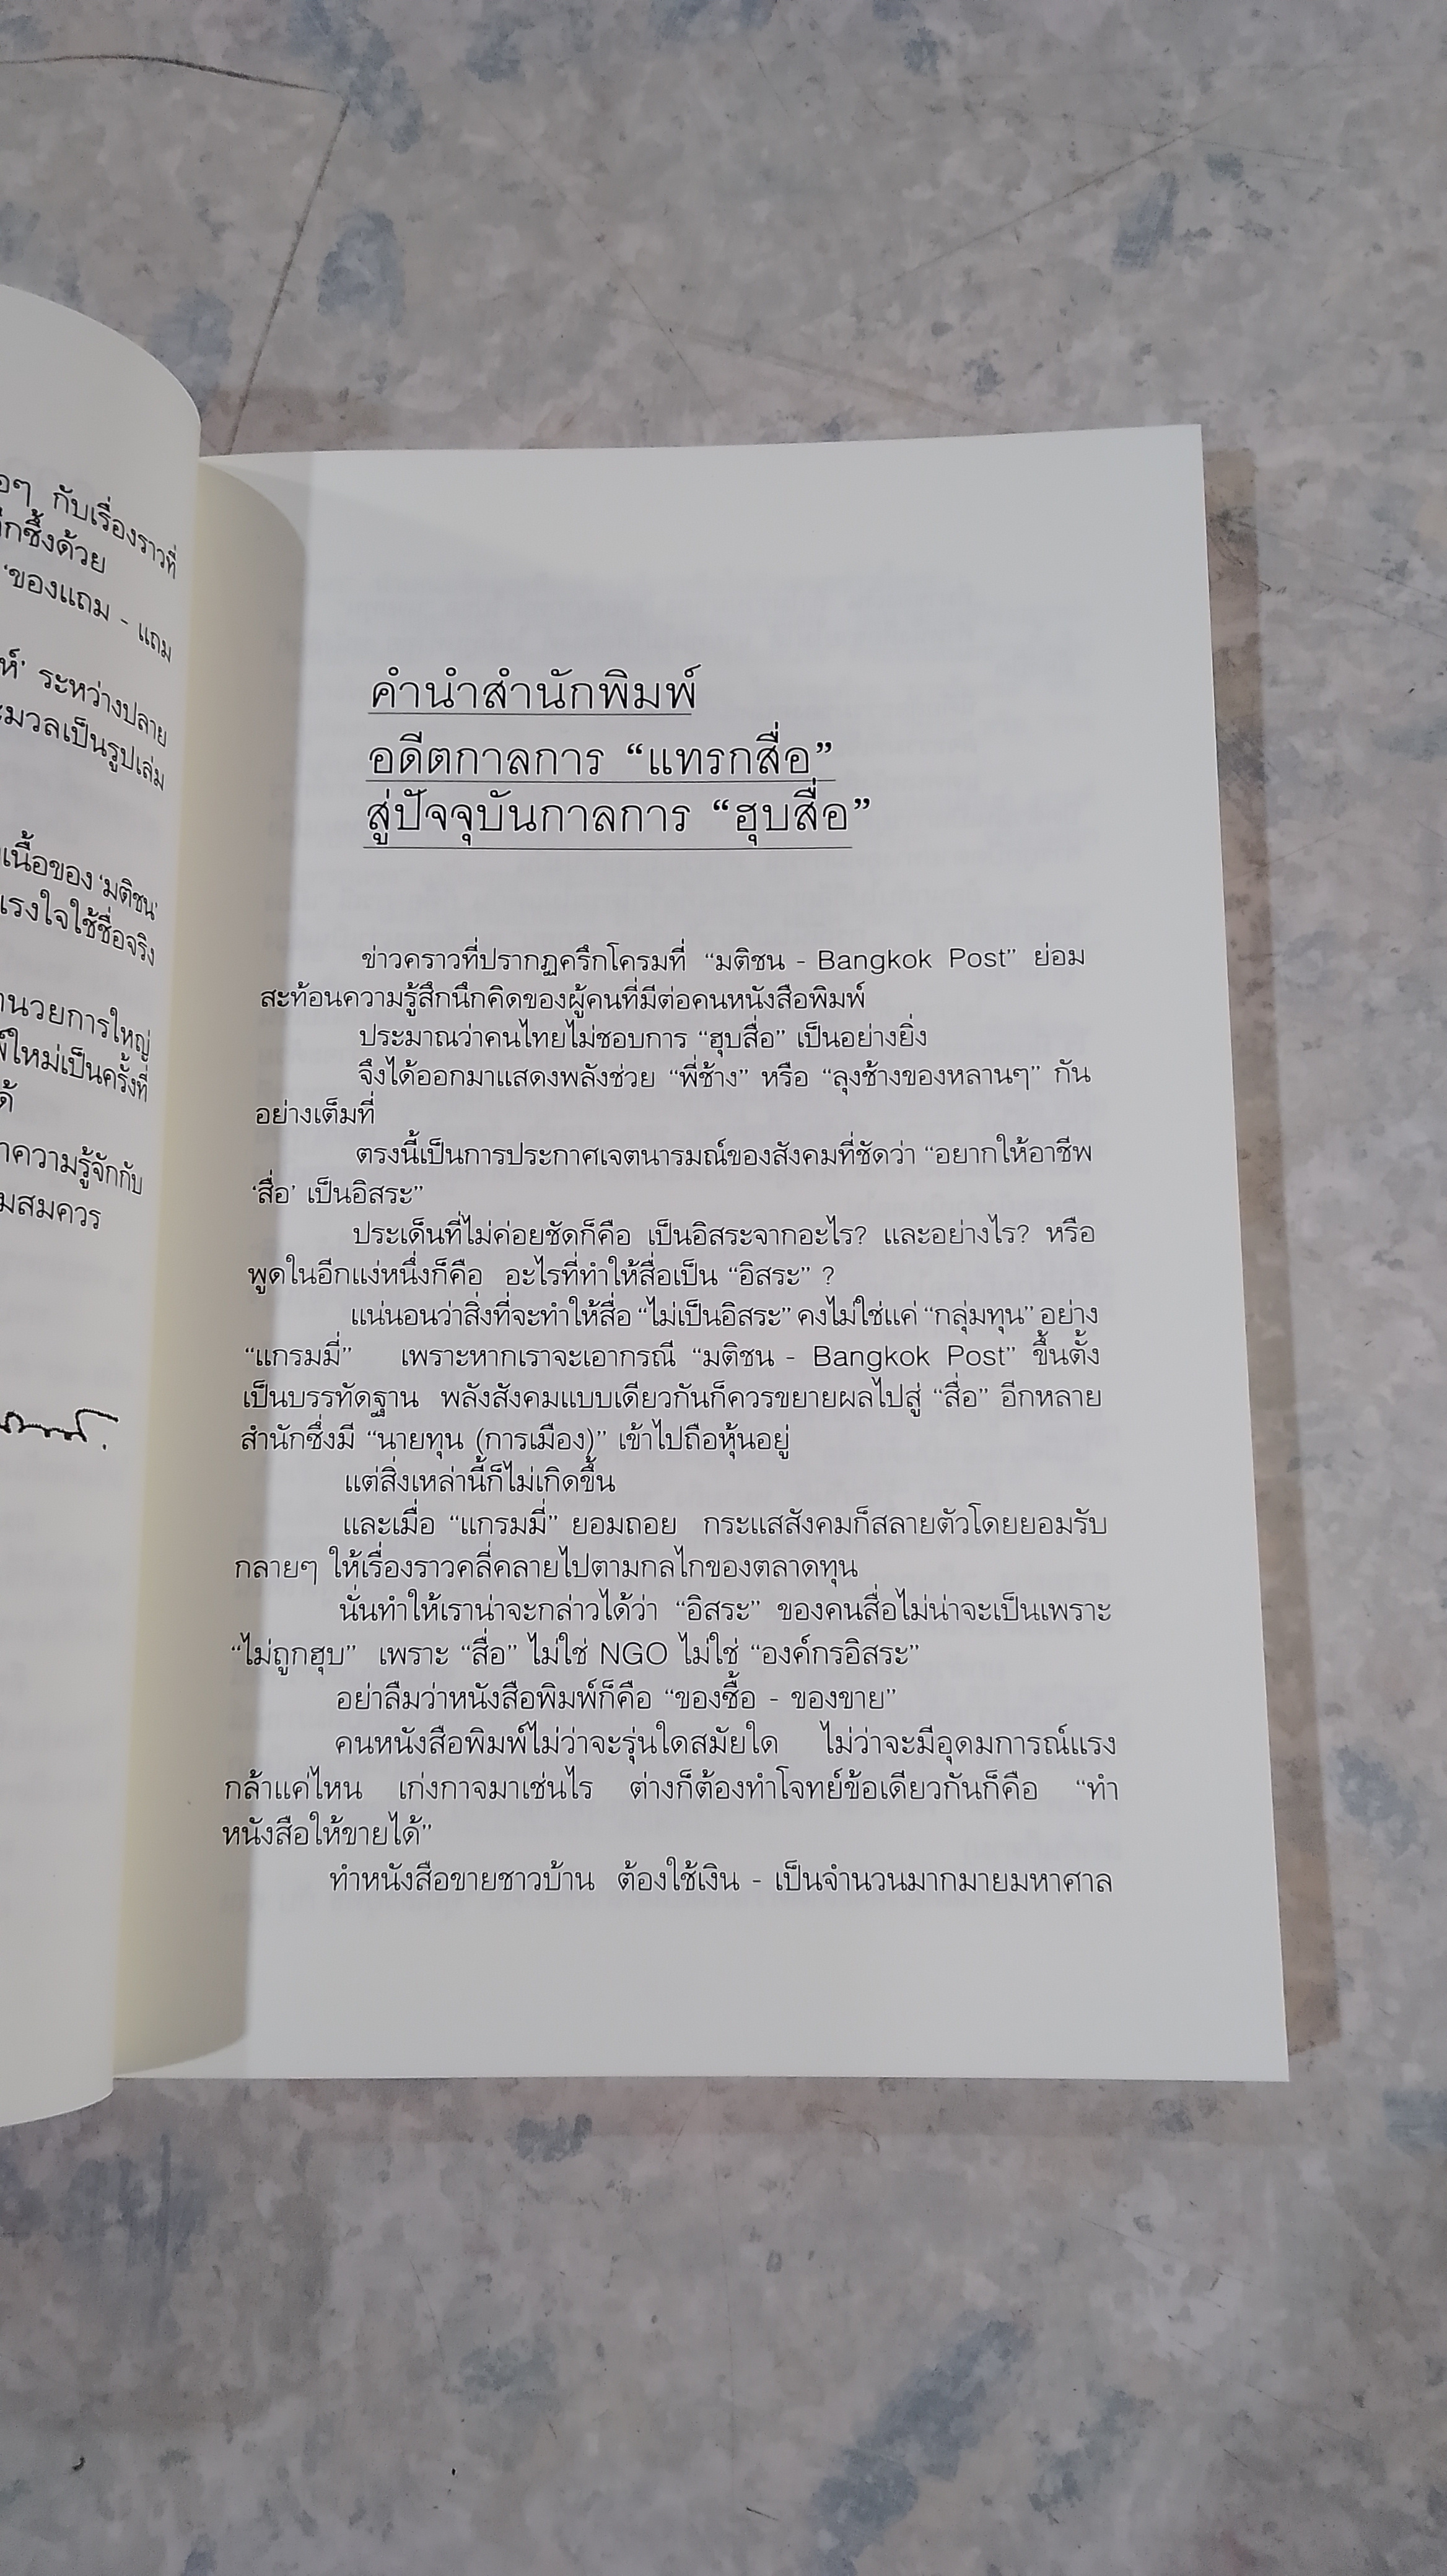 อๆ กับเรื่องราวที่
กซึ้งด้วย
‘ของแถม - แถม
ห์’ ระหว่างปลาย
ะมวลเป็นรูปเล่ม
เนื้อของ ‘มติชน’
แรงใจใช้ชื่อจริง
นวยการใหญ่
ใหม่เป็นครั้งที่
ด้
าความรู้จักกับ
มสมควร
คำนำสำนักพิมพ์
อดีตกาลการ “แทรกสื่อ”
สู่ปัจจุบันกาลการ “ฮุบสื่อ”
ข่าวคราวที่ปรากฏครึกโครมที่ “มติชน - Bangkok Post” ย่อม
สะท้อนความรู้สึกนึกคิดของผู้คนที่มีต่อคนหนังสือพิมพ์
ประมาณว่าคนไทยไม่ชอบการ “ฮุบสื่อ” เป็นอย่างยิ่ง
จึงได้ออกมาแสดงพลังช่วย “พี่ช้าง” หรือ “ลุงช้างของหลานๆ” กัน
อย่างเต็มที่
ตรงนี้เป็นการประกาศเจตนารมณ์ของสังคมที่ชัดว่า “อยากให้อาชีพ
‘สื่อ’ เป็นอิสระ”
ประเด็นที่ไม่ค่อยชัดก็คือ เป็นอิสระจากอะไร? และอย่างไร? หรือ
พูดในอีกแง่หนึ่งก็คือ อะไรที่ทำให้สื่อเป็น “อิสระ” ?
แน่นอนว่าสิ่งที่จะทำให้สื่อ “ไม่เป็นอิสระ” คงไม่ใช่แค่ “กลุ่มทุน” อย่าง
“แกรมมี่” เพราะหากเราจะเอากรณี “มติชน - Bangkok Post” ขึ้นตั้ง
เป็นบรรทัดฐาน พลังสังคมแบบเดียวกันก็ควรขยายผลไปสู่ “สื่อ” อีกหลาย
สำนักซึ่งมี “นายทุน (การเมือง)” เข้าไปถือหุ้นอยู่
แต่สิ่งเหล่านี้ก็ไม่เกิดขึ้น
และเมื่อ “แกรมมี่” ยอมถอย กระแสสังคมก็สลายตัวโดยยอมรับ
กลายๆ ให้เรื่องราวคลี่คลายไปตามกลไกของตลาดทุน
นั่นทำให้เราน่าจะกล่าวได้ว่า “อิสระ” ของคนสื่อไม่น่าจะเป็นเพราะ
“ไม่ถูกฮุบ” เพราะ “สื่อ” ไม่ใช่ NGO ไม่ใช่ “องค์กรอิสระ”
อย่าลืมว่าหนังสือพิมพ์ก็คือ “ของซื้อ - ของขาย”
คนหนังสือพิมพ์ไม่ว่าจะรุ่นใดสมัยใด ไม่ว่าจะมีอุดมการณ์แรง
กล้าแค่ไหน เก่งกาจมาเช่นไร ต่างก็ต้องทำโจทย์ข้อเดียวกันก็คือ “ทำ
หนังสือให้ขายได้”
ทำหนังสือขายชาวบ้าน ต้องใช้เงิน - เป็นจำนวนมากมายมหาศาล